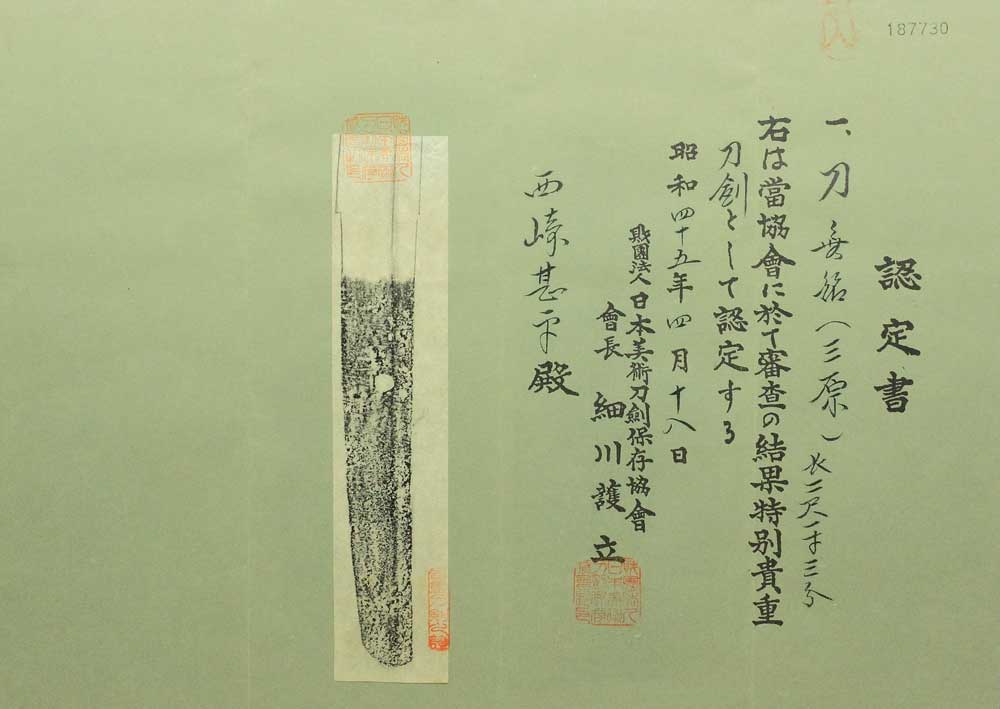 187730
認定書
一、刀 無銘（三原）長二尺一寸三分
右は當協會に於て審査の結果特別貴重
刀劍として認定する
昭和四十五年四月十八日
財團法人日本美術刀劍保存協會
會長 細川護立
西崎甚平殿